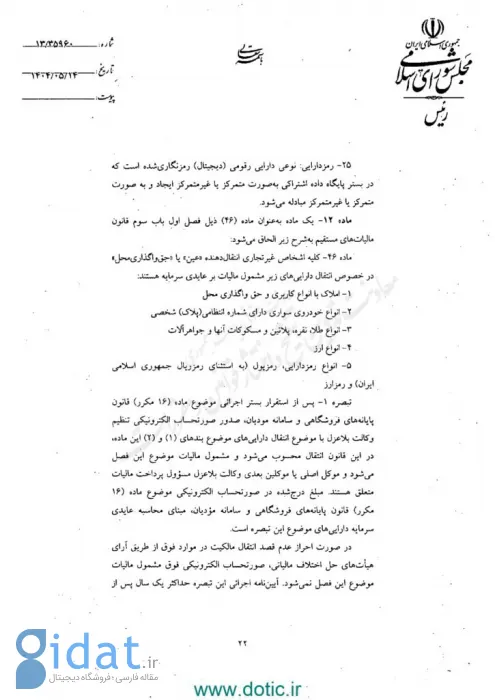 جمهوری اسلامی ایران
مجلس شورای اسلامی
رئیس
باسمه تعالی
شماره: ۱۳/۳۵۹۶۰
تاریخ: ۱۴۰۴/۰۵/۱۴
پیوست:
۲۵- رمزدارایی: نوعی دارایی رقومی (دیجیتال) رمزنگاری‌شده است که
در بستر پایگاه داده اشتراکی به‌صورت متمرکز یا غیرمتمرکز ایجاد و به صورت
متمرکز یا غیرمتمرکز مبادله می‌شود.
ماده ۱۲- یک ماده به‌عنوان ماده (۴۶) ذیل فصل اول باب سوم قانون
مالیات‌های مستقیم به‌شرح زیر الحاق می‌شود:
ماده ۴۶- کلیه اشخاص غیرتجاری انتقال‌دهنده «عین» یا «حق‌واگذاری‌محل»
در خصوص انتقال دارایی‌های زیر مشمول مالیات بر عایدی سرمایه هستند:
۱- املاک با انواع کاربری و حق واگذاری محل
۲- انواع خودروی سواری دارای شماره انتظامی(پلاک) شخصی
۳- انواع طلا، نقره، پلاتین و مسکوکات آنها و جواهرآلات
۴- انواع ارز
۵- انواع رمزدارایی، رمزپول (به استثنای رمزریال جمهوری اسلامی
ایران) و رمزارز
تبصره ۱- پس از استقرار بستر اجرائی موضوع ماده (۱۶ مکرر) قانون
پایانه‌های فروشگاهی و سامانه مودیان، صدور صورتحساب الکترونیکی تنظیم
وکالت بلاعزل با موضوع انتقال دارایی‌های موضوع بندهای (۱) و (۲) این ماده،
در این قانون انتقال محسوب می‌شود و مشمول مالیات موضوع این فصل
می‌شود و موکل اصلی یا موکلین بعدی وکالت بلاعزل مسؤول پرداخت مالیات
متعلق هستند. مبلغ درج‌شده در صورتحساب الکترونیکی موضوع ماده (۱۶
مکرر) قانون پایانه‌های فروشگاهی و سامانه مؤدیان، مبنای محاسبه عایدی
سرمایه دارایی‌های موضوع این تبصره است.
در صورت احراز عدم قصد انتقال مالکیت در موارد فوق از طریق آرای
هیأت‌های حل اختلاف مالیاتی، صورتحساب الکترونیکی فوق مشمول مالیات
موضوع این فصل نمی‌شود. آیین‌نامه اجرائی این تبصره حداکثر یک سال پس از
۲۲
gidat.ir
مقاله فارسی؛ فروشگاه دیجیتال
www.dotic.ir